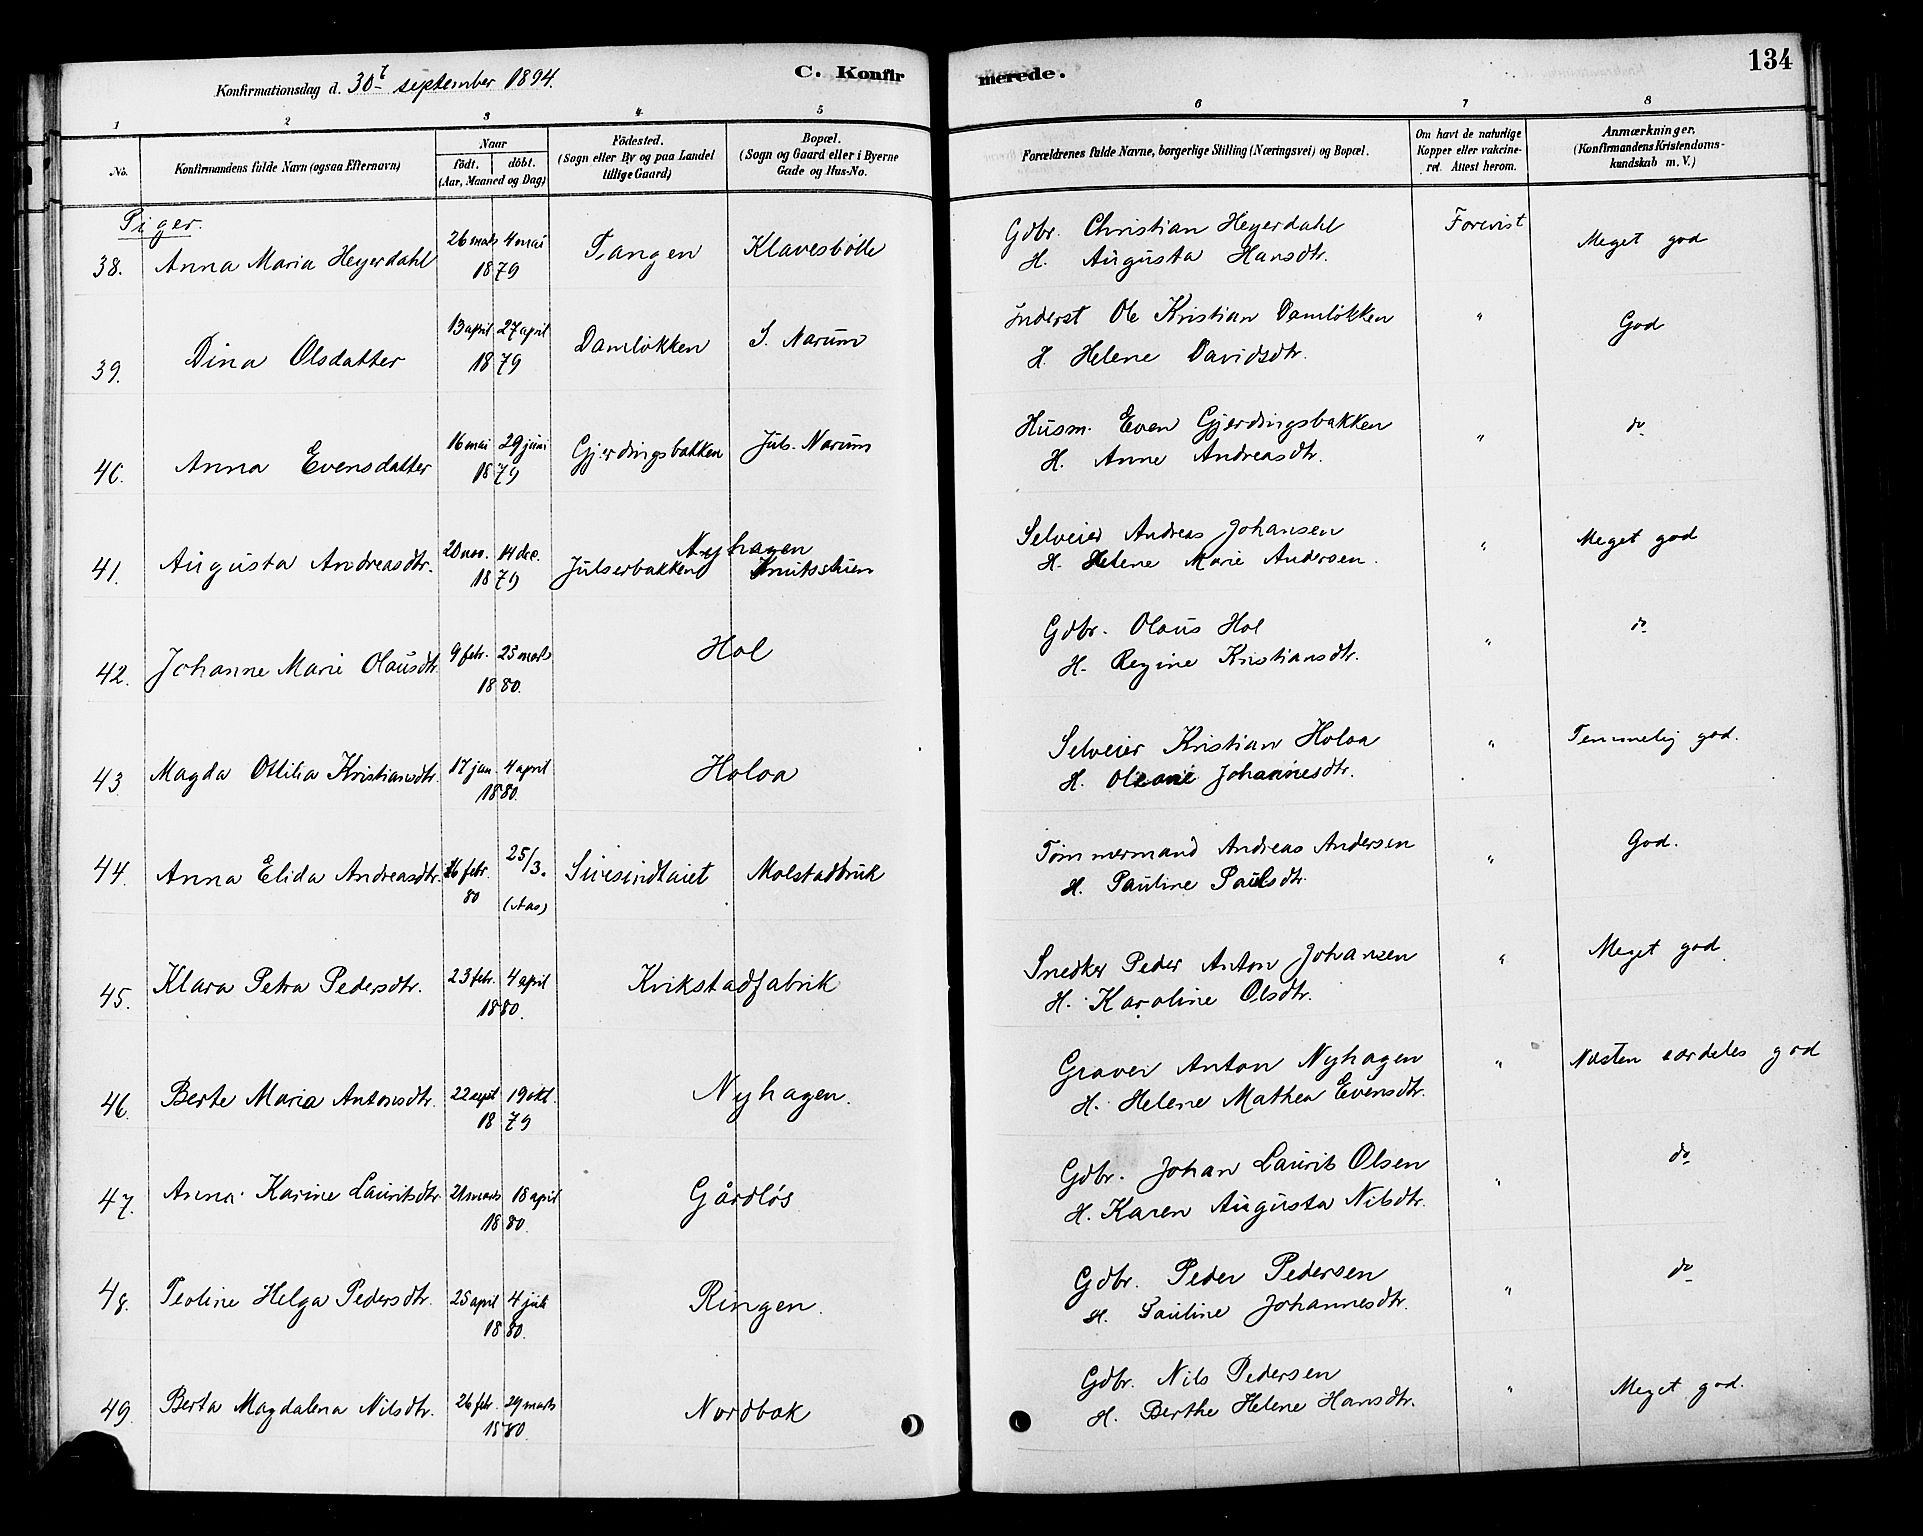 134
Konfirmationsdag d. 30t september 1894.
C. Konfirmerede.
1 2 3 4 5 6 7 8
No.
Konfirmandens fulde Navn (ogsaa Efternavn)
Naar
födt. döbt.
(Aar, Maaned og Dag)
Födested.
(Sogn eller By og paa Landet tillige Gaard)
Bopæl.
(Sogn og Gaard eller i Byerne Gade og Hus-No.
Forældrenes fulde Navne, borgerlige Stilling (Næringsvei) og Bopæl.
Om havt de naturlige Kopper eller vakcineret. Attest herom.
Anmærkninger.
(Konfirmandens Kristendomskundskab m. V.)
Piger.
38. Anna Maria Heyerdahl 26 mars 4 mai 1879 Tangen Klavesbölle Gdbr. Christian Heyerdahl Forevist Meget god
H. Augusta Hansdtr.
39. Dina Olsdatter 13 april 27 april 1879 Damlökken S. Narum Inderst Ole Kristian Damlökken " God
H. Helene Davidsdtr.
40. Anna Evensdatter 16 mai 29 juni 1879 Gjerdingsbakken Juls. Narum Husm. Even Gjerdingsbakken " do
H. Anne Andreasdtr.
41. Augusta Andreasdtr. 20 nov. 14 dec. 1879 Julserbakken Nyhagen Selveier Andreas Johansen " Meget god
H. Helene Marie Andersen.
42. Johanne Marie Olausdtr. 9 febr. 25 mars 1880. Hol Gdbr. Olaus Hol " do
H. Regine Kristiansdtr.
43 Magda Ottilia Kristiansdtr. 17 jan. 4 april 1880. Holoa Selveier Kristian Holoa " Temmelig god.
H. Oleane Johannesdtr.
44. Anna Elida Andreasdtr. 16 febr. 80 25/3. (Aas) Sivesindtaiet Molstadbruk Tömmermand Andreas Andersen " God.
H. Pauline Paulsdtr.
45. Klara Petra Pedersdtr. 23 febr. 4 april 1880. Kvikstadfabrik Snedker Peder Anton Johansen " Meget god
H. Karoline Olsdtr.
46. Berte Maria Antonsdtr. 22 sept 19 okt. 1879 Nyhagen. Graver Anton Nyhagen " Næsten særdeles god
H. Helene Mathea Evensdtr.
47. Anna Karine Lauritsdtr. 21 mars 18 april 1880. Gårdlös Gdbr. Johan Laurits Olsen " do
H. Karen Augusta Nilsdtr.
48. Teoline Helga Pedersdtr. 25 april 4 juli 1880. Ringen. Gdbr. Peder Pedersen " do
H. Pauline Johannesdtr.
49. Berta Magdalena Nilsdtr. 26 febr. 29 mars 1880. Nordbak Gdbr. Nils Pedersen " Meget god.
H. Berthe Helene Hansdtr.